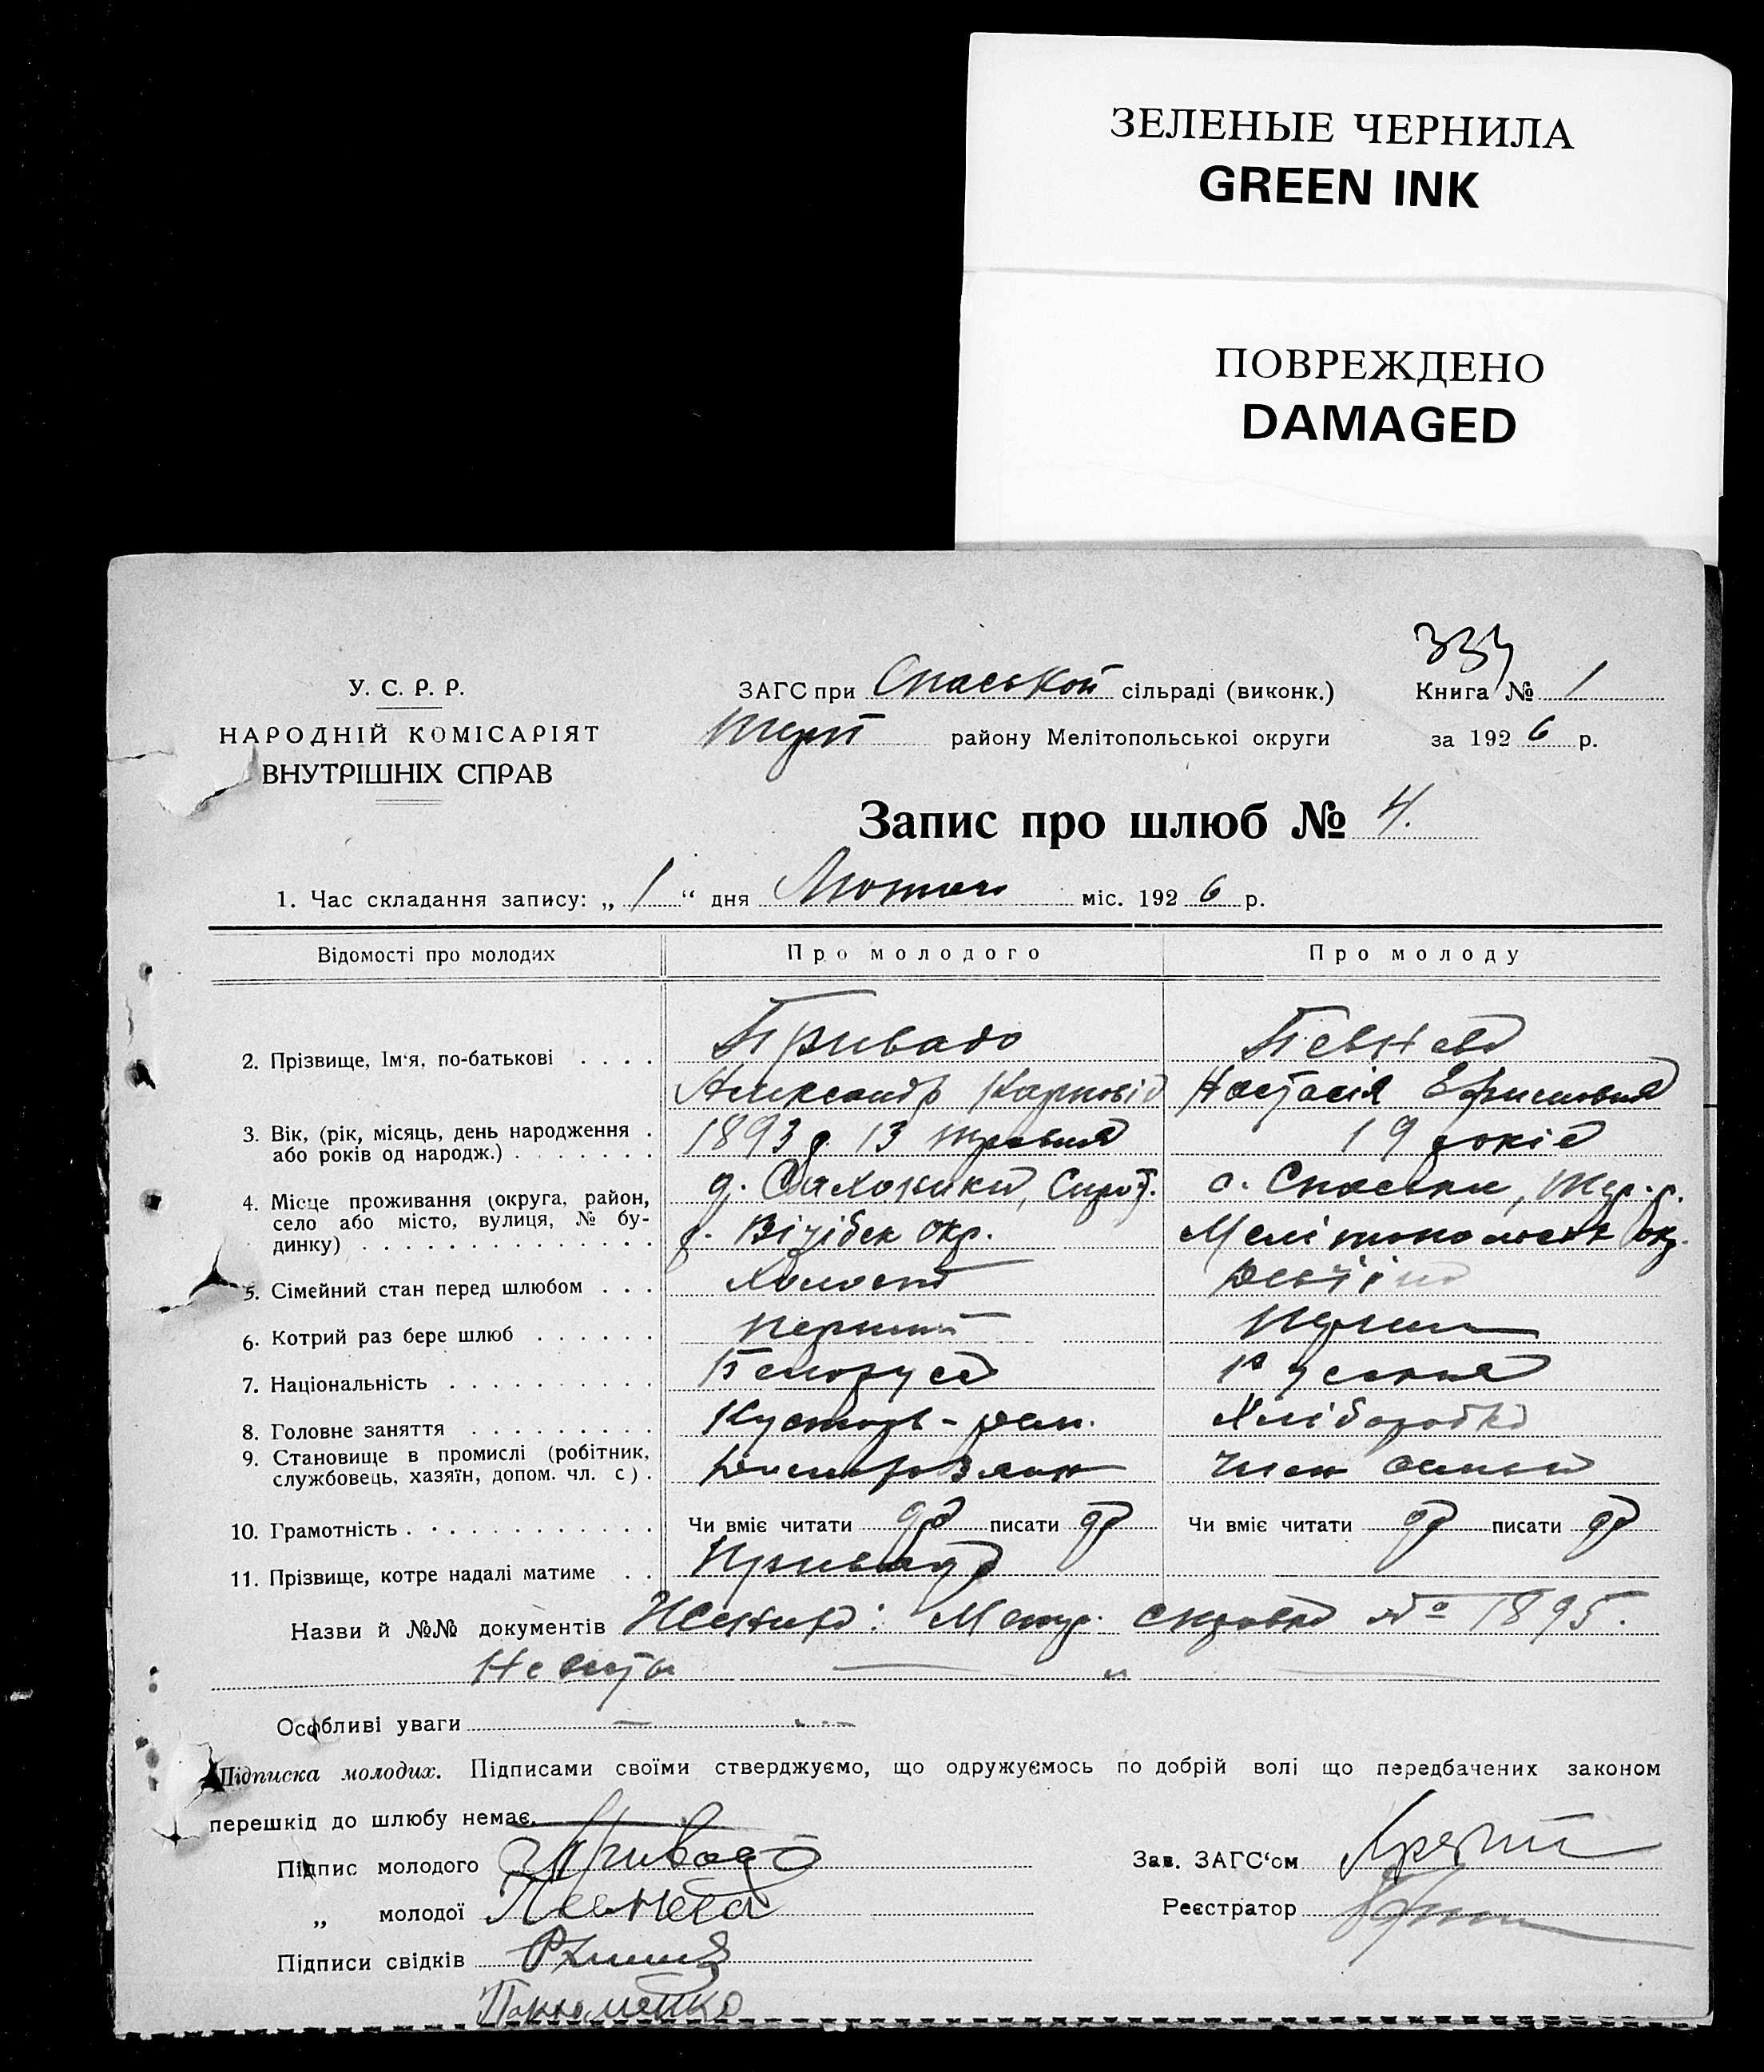 ЗЕЛЕНЫЕ ЧЕРНИЛА
GREEN INK
ПОВРЕЖДЕНО
DAMAGED
334
У. С. Р. Р.
НАРОДНІЙ КОМІСАРІЯТ
ВНУТРІШНІХ СПРАВ
ЗАГС при Спаськой сільраді (виконк.)
району Мелітопольської округи
Книга № 1
за 1926 р.
Запис про шлюб № 4.
1. Час складання запису: „ 1 “ дня Лютого міс. 1926 р.
Відомості про молодих Про молодого Про молоду
2. Прізвище, Ім'я, по-батькові . . . . Привадо Певнева
Александр Карповіч Настасія Ефимовна
3. Вік, (рік, місяць, день народження . або років од народж.) . . . . . . . 1893 р. 13 травня 19 років
4. Місце проживання (округа, район, село або місто, вулиця, № будинку) . . . . . . . . . . . . . .
с. Спаське, Мел. р.
р. Вітібск окр. Мелітопольськ окр.
5. Сімейний стан перед шлюбом . . . Холост
6. Котрий раз бере шлюб . . . . . . перший перший
7. Національність . . . . . . . . . . Белорус Руська
8. Головне заняття . . . . . . . . . Кустарь Хліборобка
9. Становище в промислі (робітник, службовець, хазяїн, допом. чл. с) . член
10. Грамотність . . . . . . . . . . . . Чи вміє читати да писати да Чи вміє читати да писати да
11. Прізвище, котре надалі матиме . . Привадо
Назви й №№ документів Жениха: Метр. справка № 1895.
Невести — " —
Особливі уваги
Підписка молодих. Підписами своїми стверджуємо, що одружуємось по добрій волі що передбачених законом
перешкід до шлюбу немає.
Підпис молодого Привадо
„ молодої Певнева
Підписи свідків
Зав. ЗАГС‘ом
Реєстратор